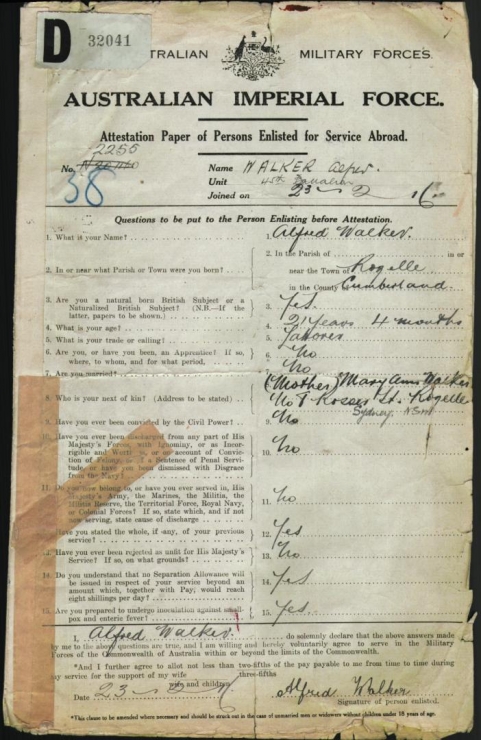 D 32041
TRALIAN MILITARY FORCES.
AUSTRALIAN IMPERIAL FORCE.
Attestation Paper of Persons Enlisted for Service Abroad.
2255
No.
58
Name WALKER Alfred.
Unit 45th Battalion
Joined on 23 2 16
Questions to be put to the Person Enlisting before Attestation.
1. What is your Name? 1. Alfred Walker.
2. In or near what Parish or Town were you born? 2. In the Parish of in or
near the Town of Rogelle
in the County Cumberland.
3. Are you a natural born British Subject or a
Naturalized British Subject? (N.B.—If the
latter, papers to be shown.) 3. Yes.
4. What is your age? 4. 21 years 4 months
5. What is your trade or calling? 5. Labores
6. Are you, or have you been, an Apprentice? If so,
where, to whom, and for what period, 6. No
7. Are you married? 7. No
8. Who is your next of kin? (Address to be stated) (Mother) Mary Ann Walker
No 7 St. Rogelle
Sydney. NSW
9. Have you ever been convicted by the Civil Power? 9. No
10. Have you ever been discharged from any part of His
Majesty's Forces, with Ignominy, or as Incor-
rigible and Worthless, or on account of Convic-
tion of Felony, or of a Sentence of Penal Servi-
tude, or have you been dismissed with Disgrace
from the Navy? 10. No
11. Do you now belong to, or have you ever served in, His
Majesty's Army, the Marines, the Militia, the
Militia Reserve, the Territorial Force, Royal Navy,
or Colonial Forces? If so, state which, and if not
now serving, state cause of discharge 11. No
12. Have you stated the whole, if any, of your previous
service? 12. Yes
13. Have you ever been rejected as unfit for His Majesty's
Service? If so, on what grounds? 13. No
14. Do you understand that no Separation Allowance will
be issued in respect of your service beyond an
amount which, together with Pay, would reach
eight shillings per day? 14. Yes
15. Are you prepared to undergo inoculation against small-
pox and enteric fever? 15. Yes.
I, Alfred Walker. do solemnly declare that the above answers made
by me to the above questions are true, and I am willing and hereby voluntarily agree to serve in the Military
Forces of the Commonwealth of Australia within or beyond the limits of the Commonwealth.
*And I further agree to allot not less than two-fifths of the pay payable to me from time to time during
three-fifths
my service for the support of my wife
wife and children
Date 23 Alfred Walker
Signature of person enlisted.
*This clause to be amended where necessary and should be struck out in the case of unmarried men or widowers without children under 18 years of age.